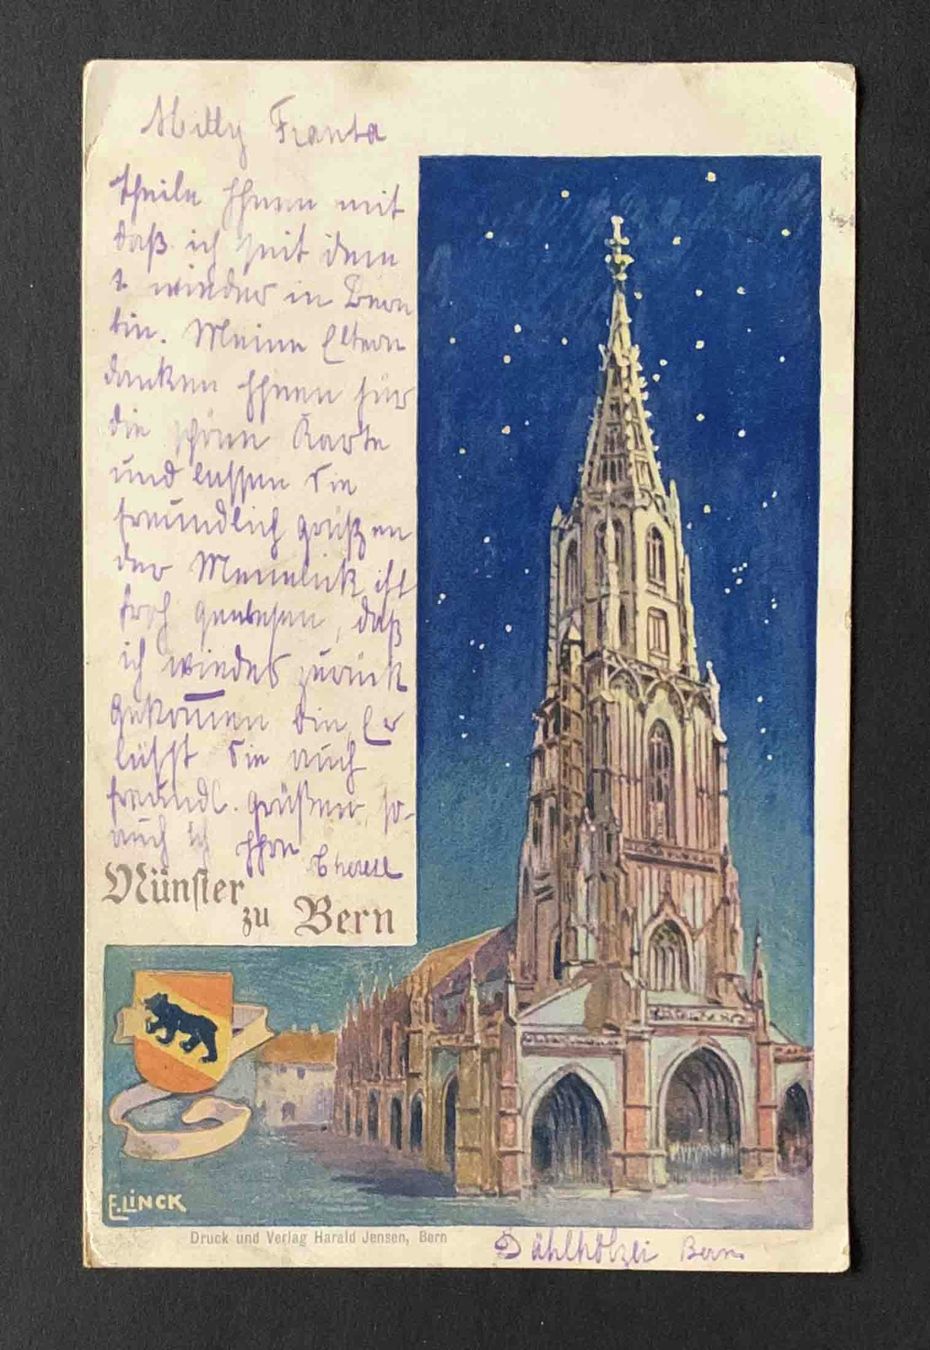 Milly Franta
theile Ihnen mit
daß ich seit dem
1. wieder in Bern
bin. Meine Eltern
danken Ihnen für
die schöne Karte
und lassen Sie
freundlich grüßen
der Menelick ist
froh gewesen, daß
ich wieder zurück
gekommen bin Er
läßt Sie auch
freundl. grüßen, so-
auch ich Ihre Therese
Münster
zu Bern
E. LINCK
Druck und Verlag Harald Jensen, Bern
Dählhölzli Bern